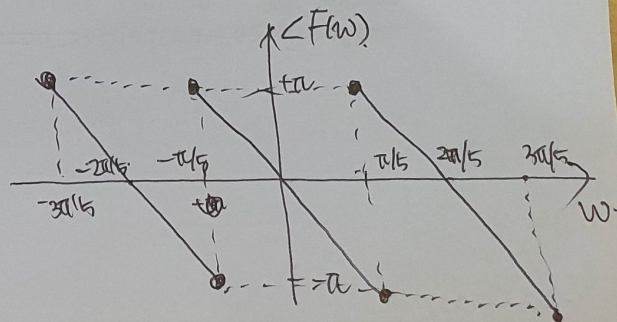 ∠F(w).
+π
-2π/5 -π/5 π/5 2π/5 3π/5
-3π/5 w.
-π